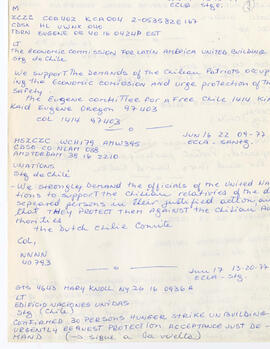 M ECLA Stgo.
ZCZC CCB402 KCA004 2-053532E167
CDSG HL UWNX 040
TDRN EUGENE OR 40 16 0424P EST
LT
the Economic Commission for Latin America United Building
Stgo de Chile
We support the demands of the Chilean Patriots occup
ing the Economic Comission and urge protection of the
Safety
The Eugene Committee for a Free Chile 1414 Kin
Kaid Eugene Oregon 97403
COL 1414 97403
Jun 16 22 09-77
ECLA - Santg.
MSZCZC WCH179 AMW395
CDSG CO NLAM 028
AMSTERDAM 38 16 2210
UNATIONS
Stg de Chile
We strongly demand the officials of the United Na
tions to support the Chilean relatives of the di
sepeared persons in their justified action an
that they protect them against the Chilian Au
thorities
the Dutch Chile Comite
COL,
NNNN
40793
Jun 17 13-20-77
ECLA - Stg.
GTS 4643 MARY KNOLL NY 26 16 0936A
LT
EDIFICIO NACIONES UNIDAS
Stg (Chile)
CONFIRMED 30 PERSONS HUNGER STRIKE UN BUILDING
URGENTLY REQUEST PROTECTION, ACCEPTANCE JUST DE-
MAND (→ sigue a la vuelta)